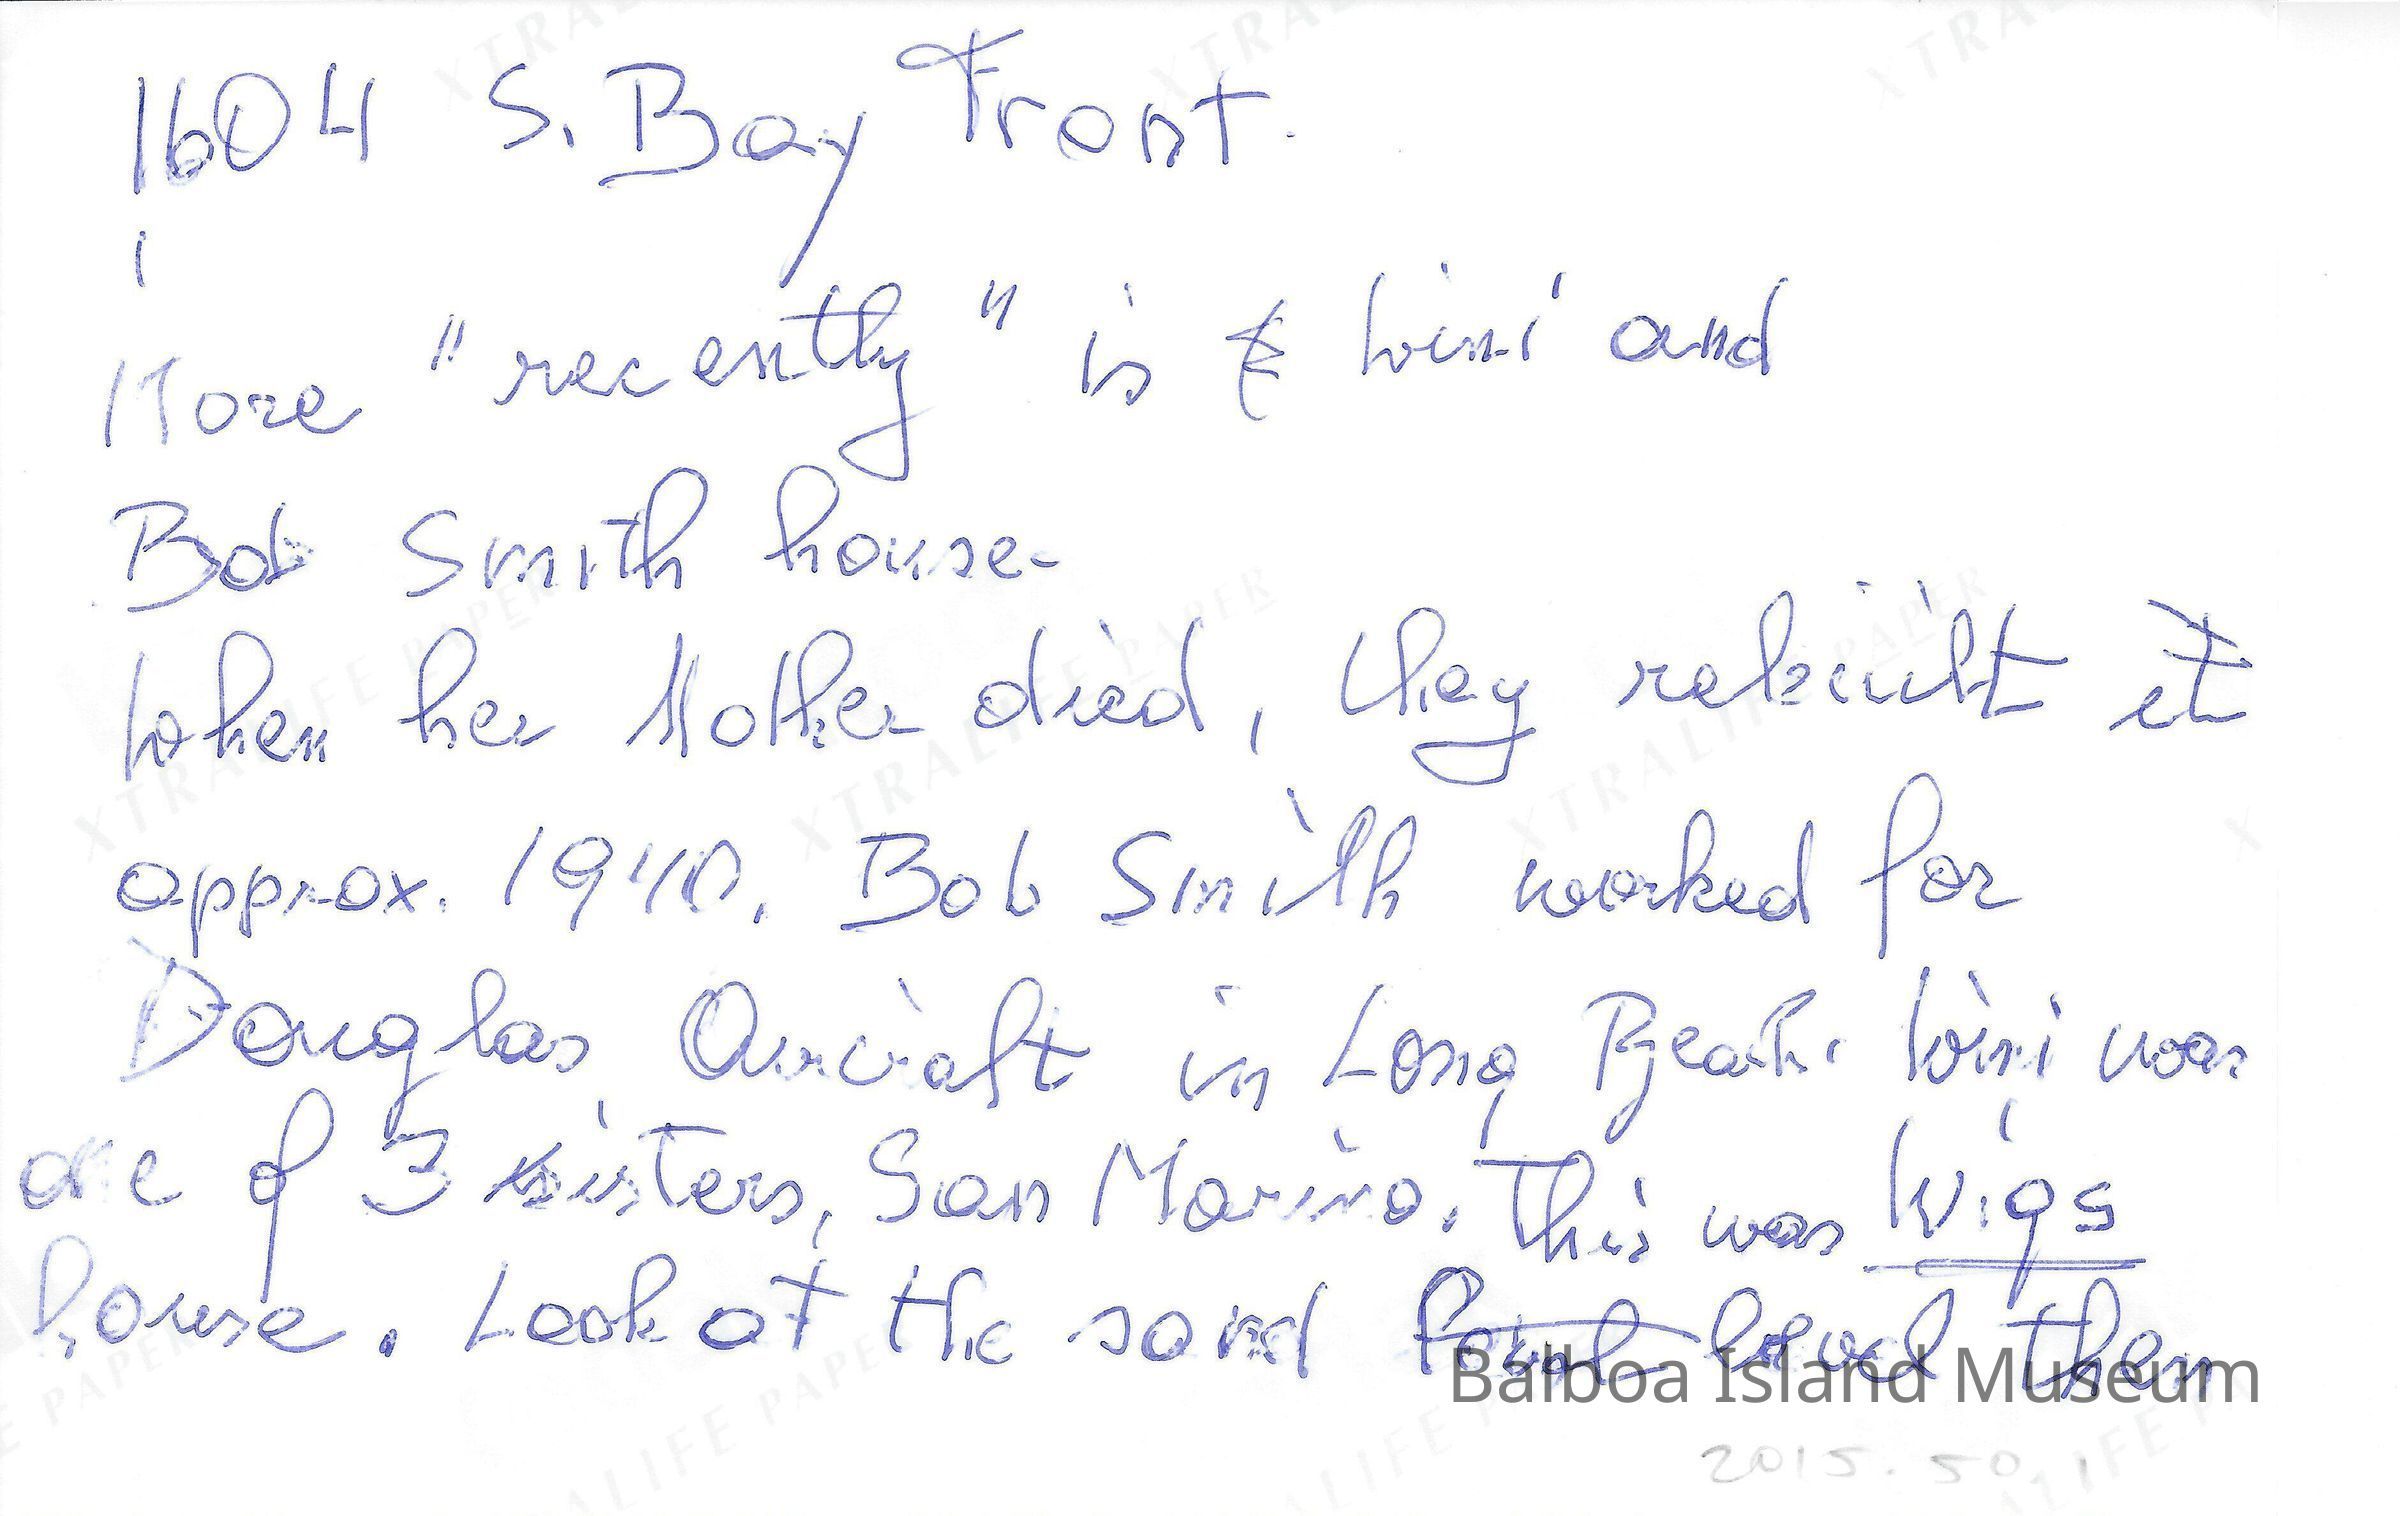 1604 S. Bay Front.
More "recently" is Wini and
Bob Smith house-
When her Mother died, they rebuilt it
approx. 1940. Bob Smith worked for
Douglas Aircraft in Long Beach. Wini was
one of 3 sisters, San Marino. This was Wigs
house. Look at the sand level then
Balboa Island Museum
2015.50.1
XTRALIFE PAPER